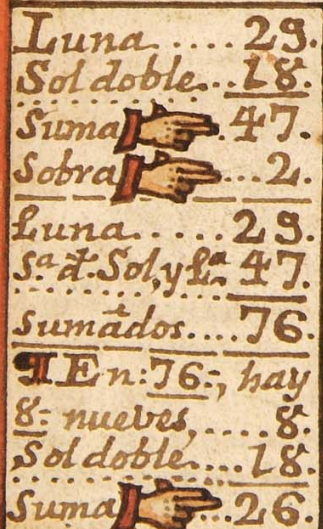 Luna.....29.
Sol doble...18.
Suma 47.
Sobra ...2.
Luna.....29.
Sª đ. Sol, y Lª 47.
sumados....76.
¶ En: 76:, hay
8: nueves,....8.
Sol doble....18.
Suma 26.